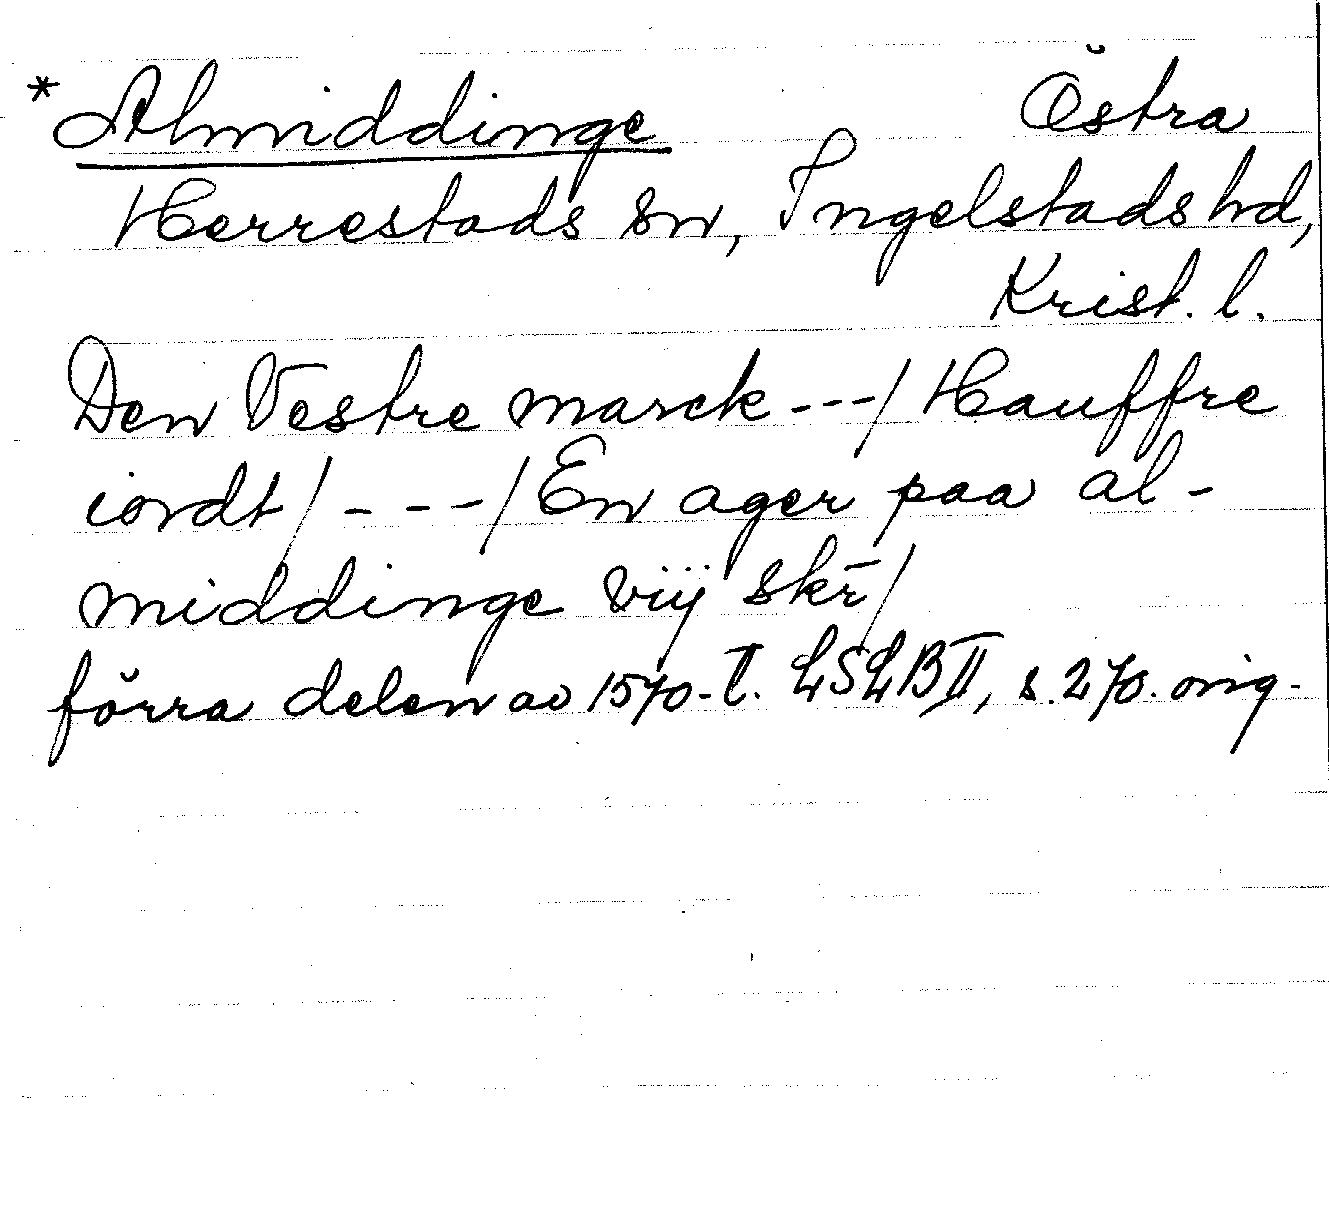 * Almiddinge Östra
Herrestads sn, Ingelstads hd,
Krist. l.
Den Vestre marck ---/ Hauffre
iordt/ - - - / En ager paa al-
middinge vij skr̄/
förra delen av 1570-t. LSLB II, s. 270. orig.